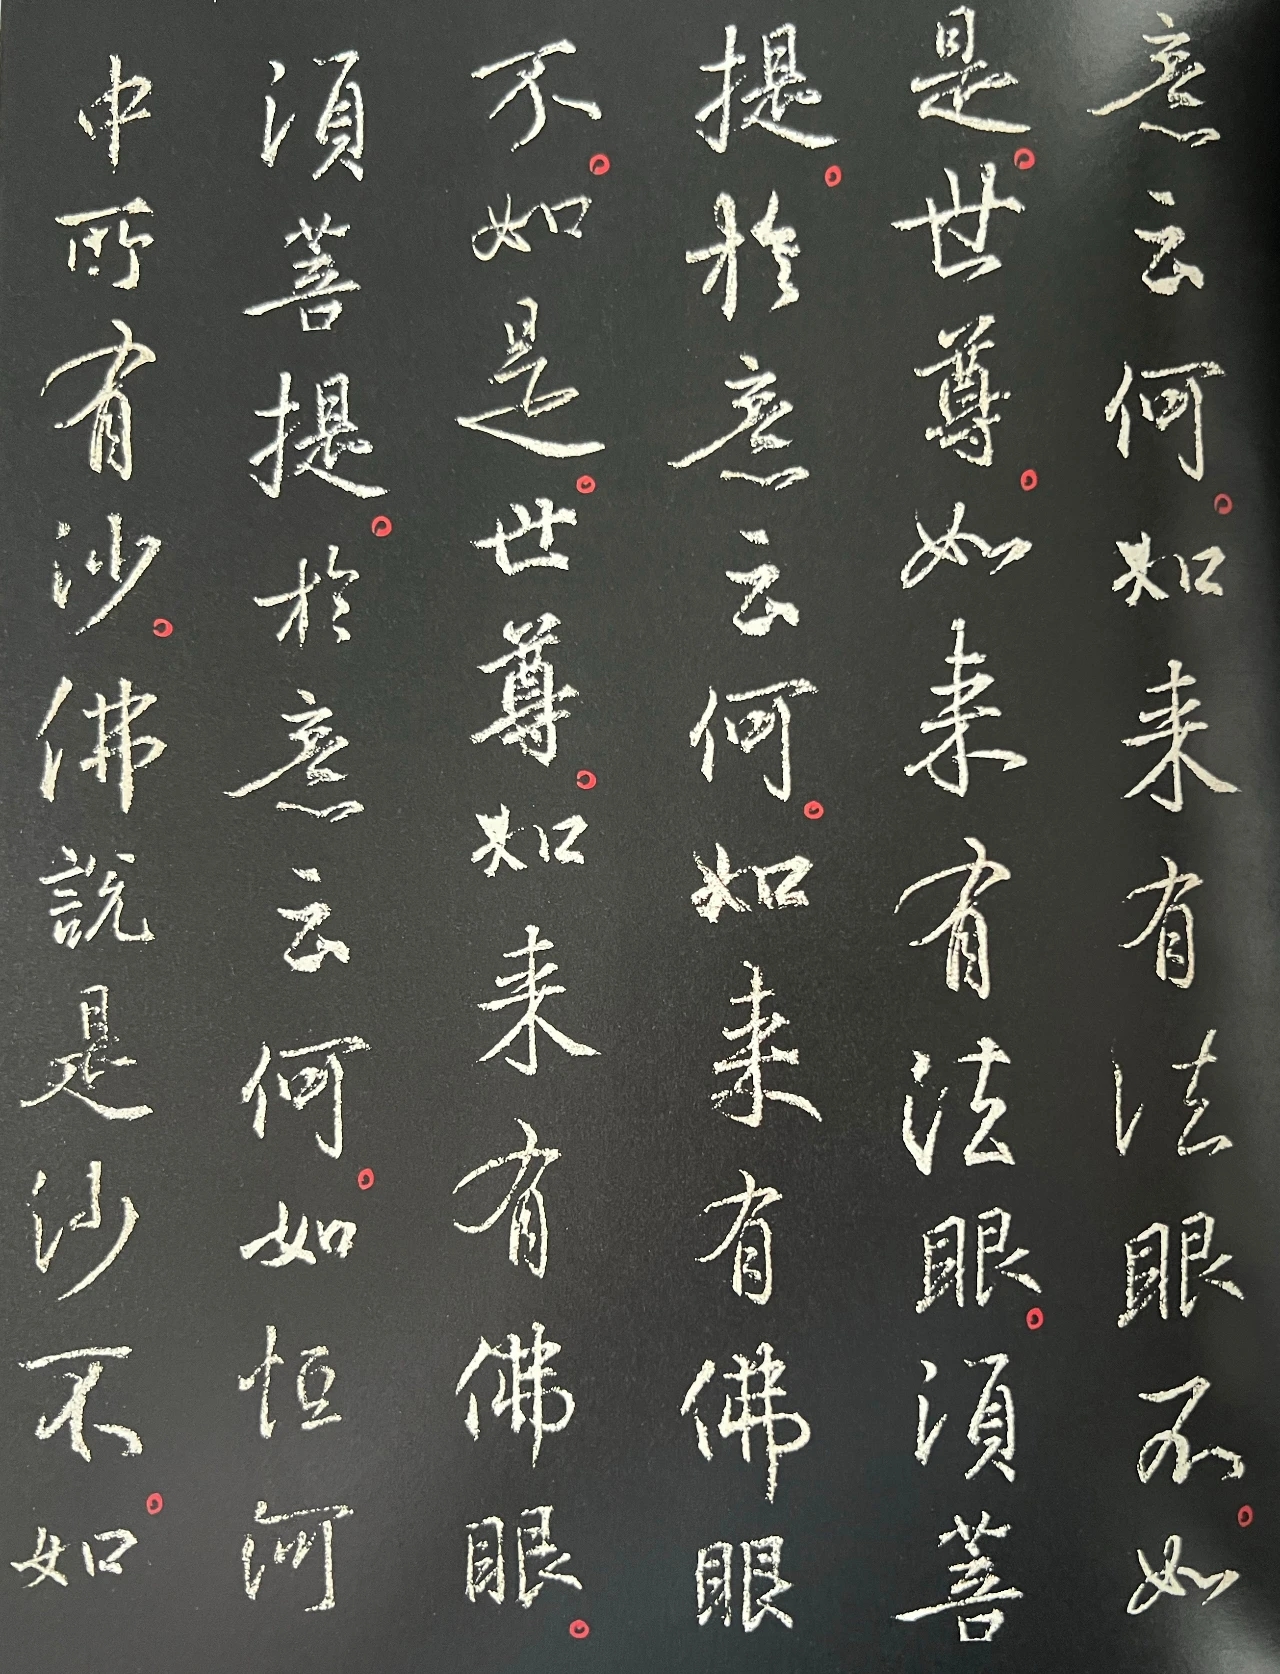 意云何。如来有法眼不。如
是。世尊。如来有法眼。須菩
提。於意云何。如来有佛眼
不。如是。世尊。如来有佛眼。
須菩提。於意云何。如恒河
中所有沙。佛說是沙不。如